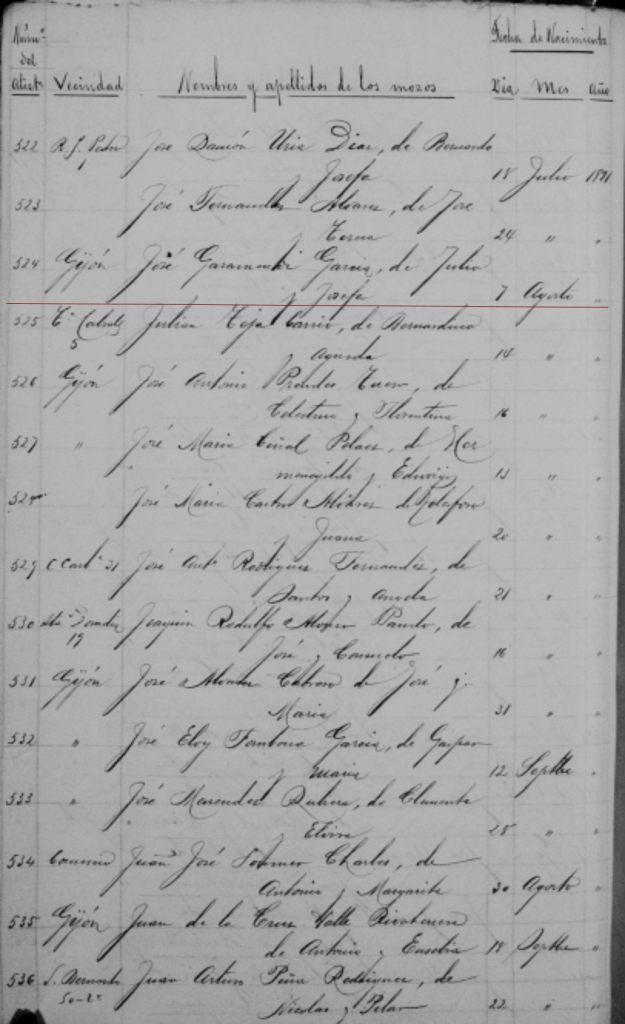 Núm.º del Alist.to Vecindad Nombres y apellidos de los mozos Fecha de Nacimiento
Dia Mes Año
522 R. S. Pedro Jose Ramón Uria Diaz, de Bernardo
1 y Josefa 18 Julio 1891
523 José Fernandez Alvarez, de Jose
y Teresa 24 " "
524 Gijón José Garamendi Garcia, de Julio
y Josefa 7 Agosto "
525 Julian Teja Carrio, de Bernardino
5 y Agueda 14 " "
526 Gijón José Antonio Prendes Tuero, de
Celestino y Florentina 16 " "
527 " José Maria Peláez, de Her
menegildo y Eduvigis 13 " "
528 José Maria Castro Alvarez de
y Juana 20 " "
529 C Cart.ª 21 José Ant.º Rodriguez Fernandez, de
Santos y 21 " "
530 Joaquin Rodulfo Alonso Pando, de
19 José y Consuelo 16 " "
531 Gijón José Alvarez Cabrera de José y
Maria 31 " "
532 " José Eloy Fombona Garcia, de Gaspar
y Maria 12 Septbre "
533 " José Menendez de Clemente
y Elvira 28 " "
534 Juan José Charles, de
Antonio y Margarita 30 Agosto "
535 Gijón Juan de la Cruz Valle
de Antonio y Eusebia 18 Septbre "
536 S. Bernardo Juan Arturo Peña Rodriguez, de
50-2º Nicolas y Pilar 22 " "